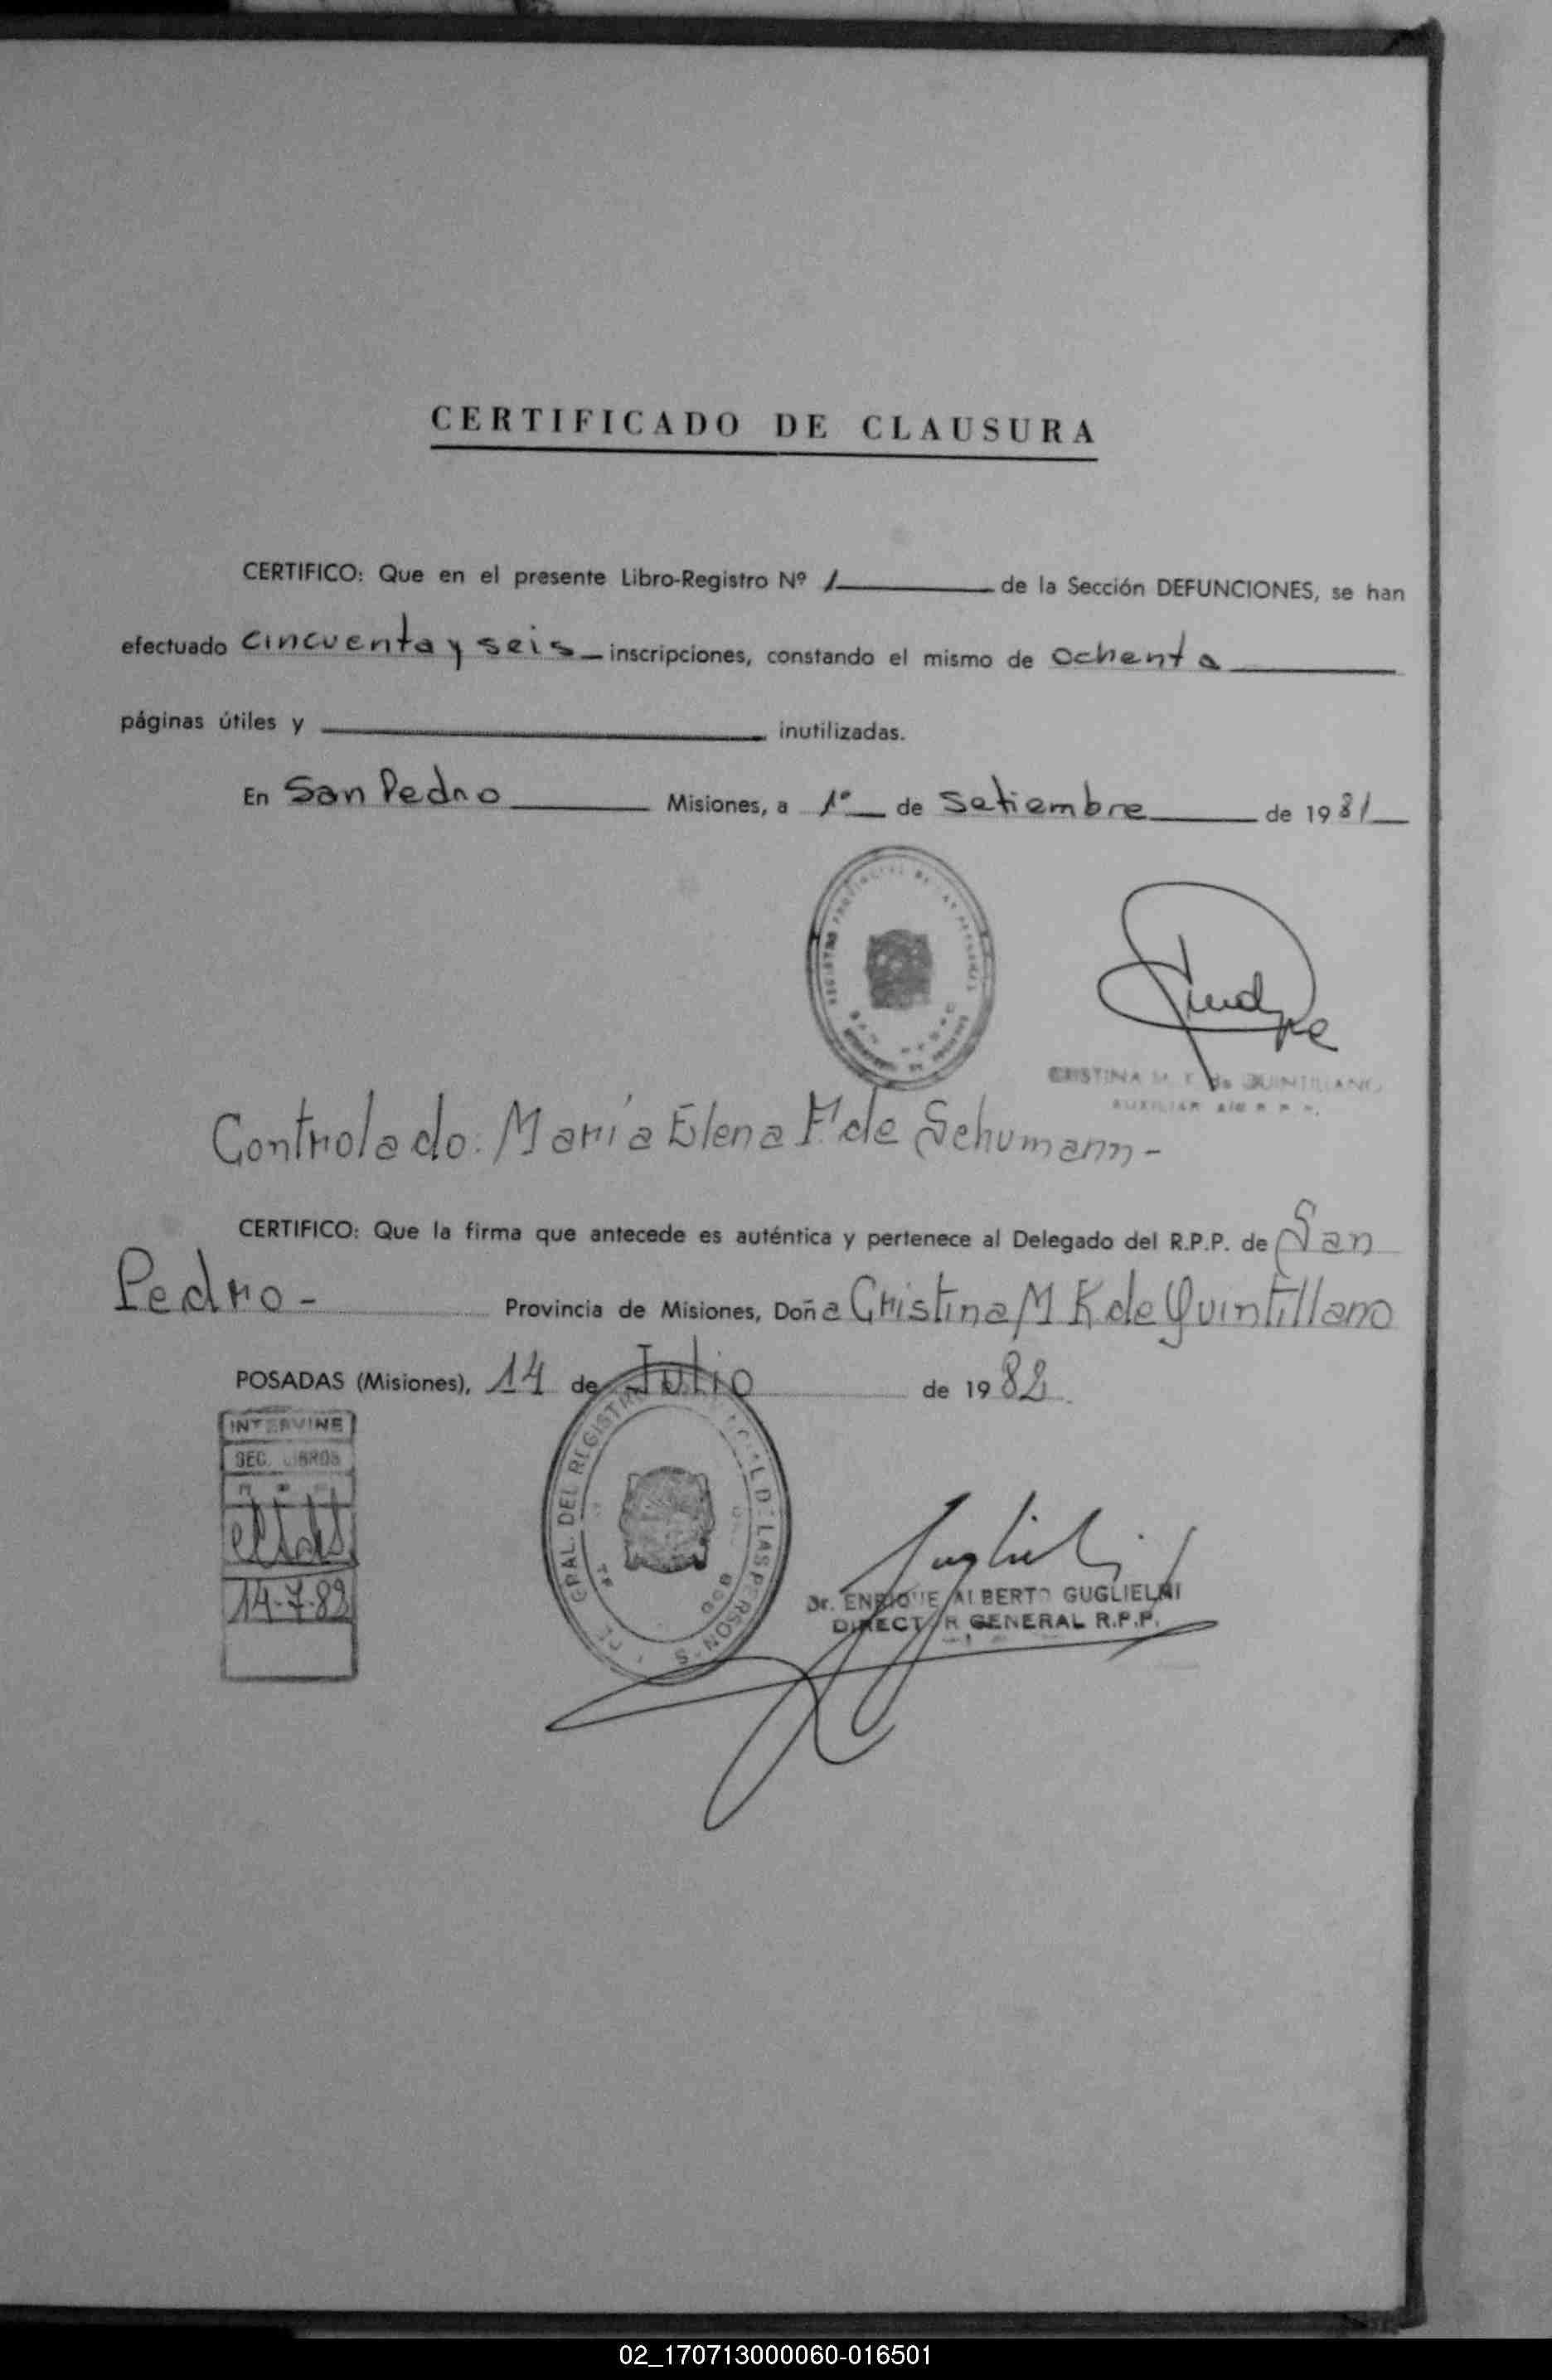 CERTIFICADO DE CLAUSURA
CERTIFICO: Que en el presente Libro-Registro Nº 1 de la Sección DEFUNCIONES, se han
efectuado cincuenta y seis inscripciones, constando el mismo de ochenta
páginas útiles y inutilizadas.
En San Pedro Misiones, a 1º de Setiembre de 1981
CRISTINA M. K. de QUINTILLANO
AUXILIAR
Controlado: María Elena F. de Schumann-
CERTIFICO: Que la firma que antecede es auténtica y pertenece al Delegado del R.P.P. de San
Pedro- Provincia de Misiones, Doña Cristina M K de Quintillano
POSADAS (Misiones), 14 de Julio de 1982
INTERVINE
SEC. LIBROS
14-7-82
GRAL. DEL REGISTRO DE LAS PERSONAS
Dr. ENRIQUE ALBERTO GUGLIELMI
DIRECTOR GENERAL R.P.P.
02_170713000060-016501